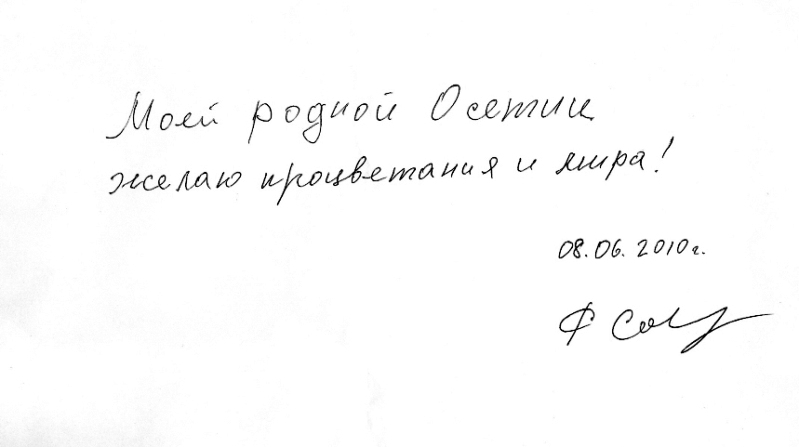 Моей родной Осетии
желаю процветания и мира!
08.06.2010г.